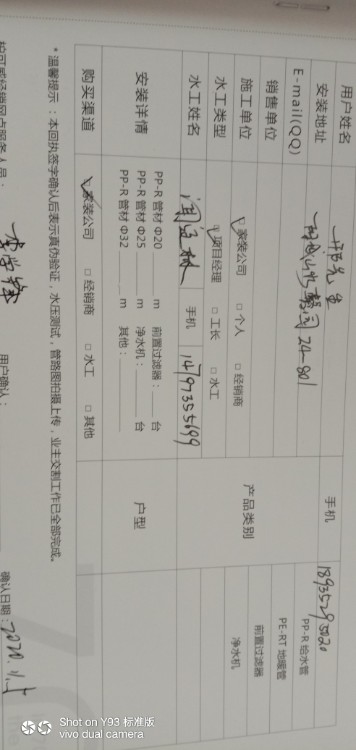 用户姓名 手机 18935295020
安装地址 24-801
E-mail(QQ)
销售单位
施工单位 家装公司 □ 个人 □ 经销商
水工类型 项目经理 □ 工长 □ 水工
水工姓名 手机 14797355699
产品类别 PP-R 给水管
PE-RT 地暖管
前置过滤器
净水机
安装详情 PP-R 管材 Φ20 m 前置过滤器: 台
PP-R 管材 Φ25 m 净水机: 台
PP-R 管材 Φ32 m 其他:
户型
购买渠道 家装公司 □ 经销商 □ 水工 □ 其他
*温馨提示:本回执签字确认后表示真伪验证,水压测试,管路图拍摄上传,业主交割工作已全部完成。
用户确认: 确认日期: 2020.11.
Shot on Y93 标准版
vivo dual camera